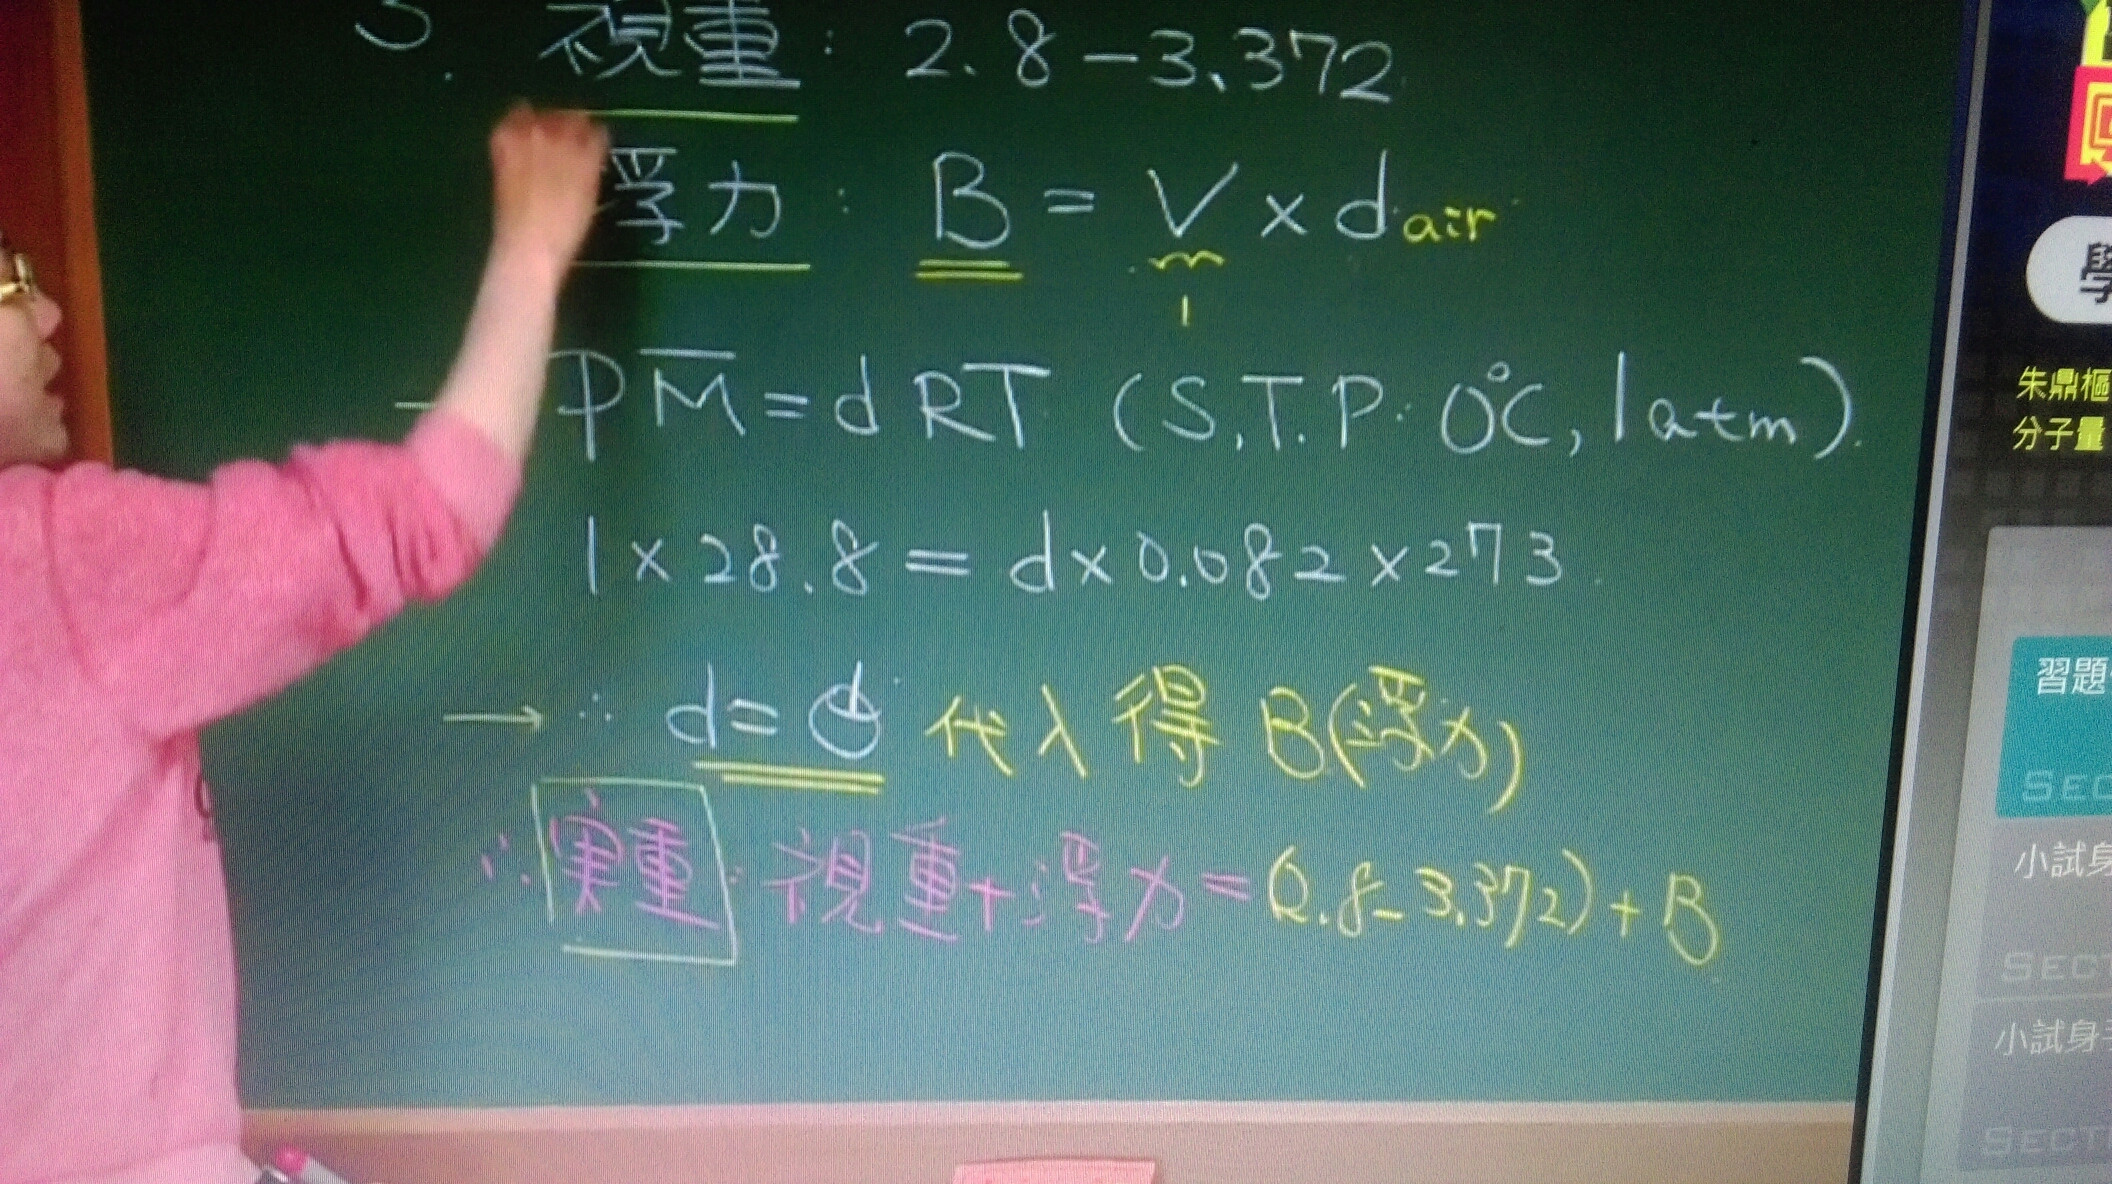 3. 視重: 2.8-3.372
浮力: B = V x d air
1
→ PM = dRT (S.T.P. 0°C, 1atm).
1 x 28.8 = d x 0.082 x 273
→ ∴ d = 代入得 B(浮力)
∴ 実重: 視重+浮力=(2.8-3.372)+B
學
朱鼎樞
分子量
習題
SEC
小試身
SECT
小試身手
SECTI